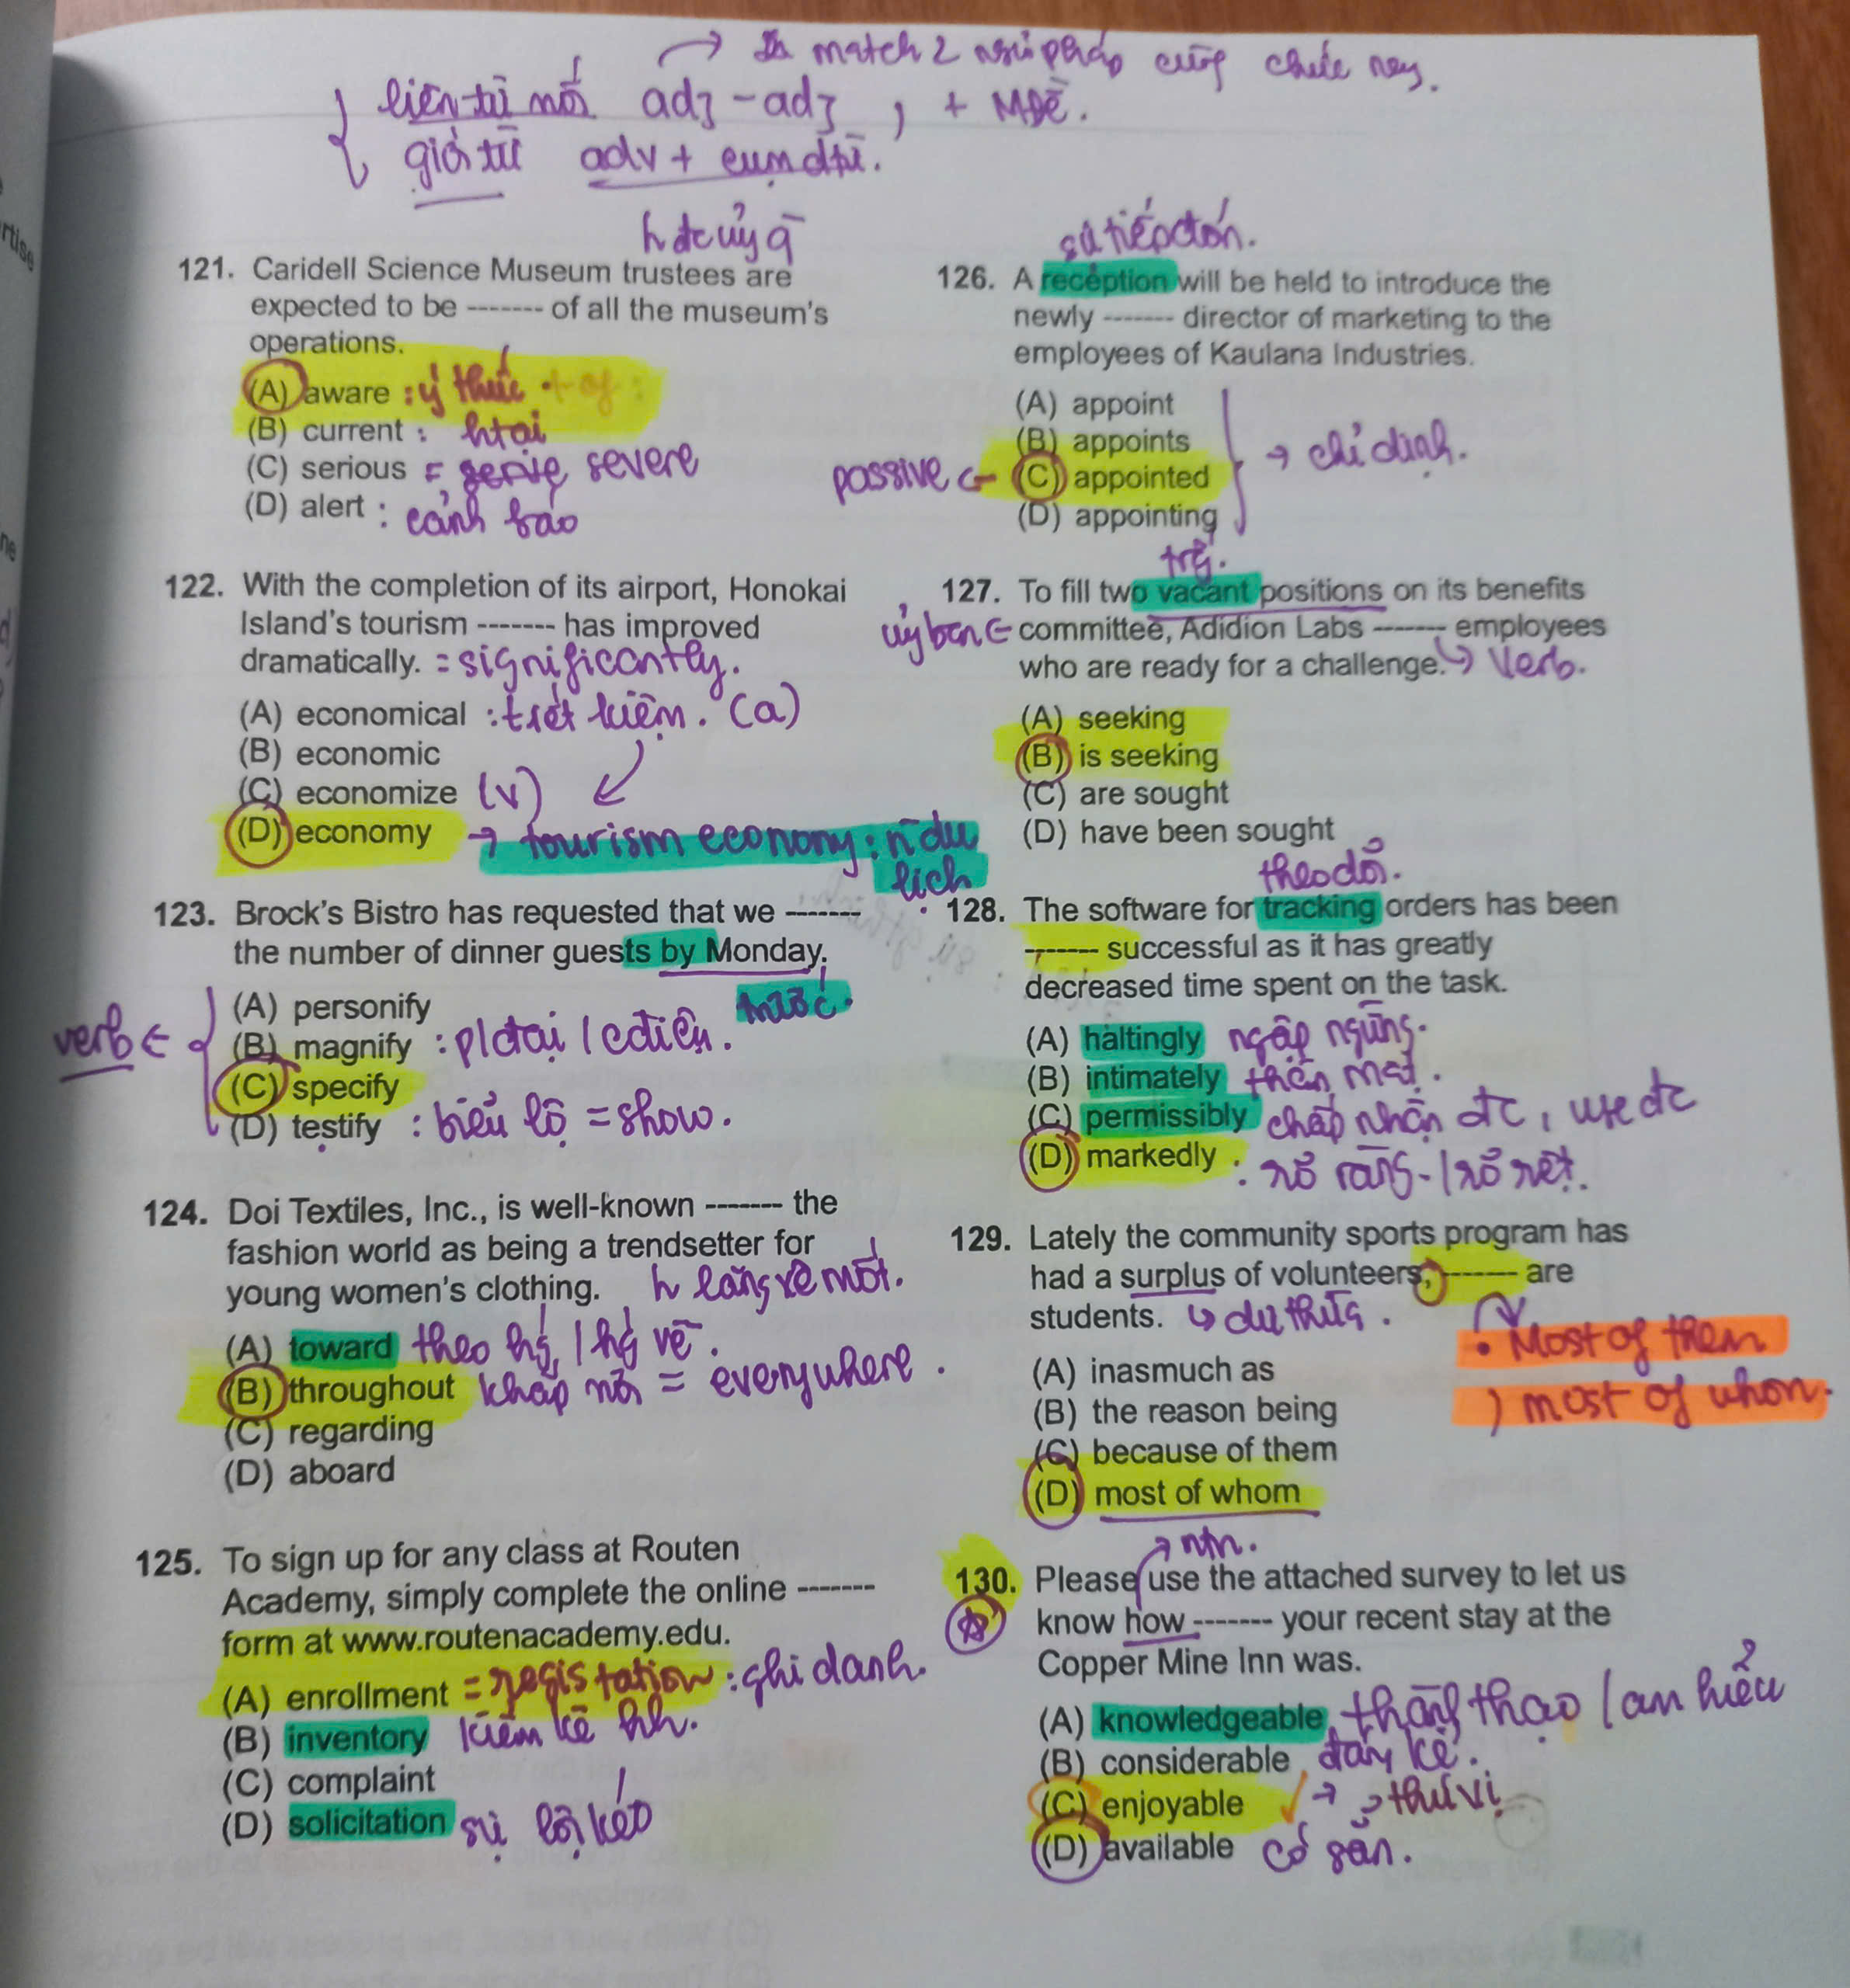 → match 2 ngữ pháp cùng chức năng.
liên từ nối adj - adj , + MĐề.
giới từ adv + cụm dtừ.
121. Caridell Science Museum trustees are
expected to be ------- of all the museum's
operations.
(A) aware : ý thức + of :
(B) current : htại
(C) serious = severe
(D) alert : cảnh báo
122. With the completion of its airport, Honokai
Island's tourism ------- has improved
dramatically. = significantly.
(A) economical : tiết kiệm. (a)
(B) economic
(C) economize (v)
(D) economy → tourism economy : n du
lịch
123. Brock's Bistro has requested that we -------
the number of dinner guests by Monday.
trước.
verb ←
(A) personify
(B) magnify : p/đại / cđiệu.
(C) specify
(D) testify : biểu lộ = show.
124. Doi Textiles, Inc., is well-known ------- the
fashion world as being a trendsetter for
young women's clothing. lăng xê mốt.
(A) toward theo hg / hg về.
(B) throughout khắp nơi = everywhere.
(C) regarding
(D) aboard
125. To sign up for any class at Routen
Academy, simply complete the online -------
form at www.routenacademy.edu.
(A) enrollment = registation : ghi danh.
(B) inventory kiểm kê hh.
(C) complaint
(D) solicitation sự lôi kéo
sự tiếp đón.
126. A reception will be held to introduce the
newly ------- director of marketing to the
employees of Kaulana Industries.
(A) appoint
(B) appoints → chỉ định.
passive ← (C) appointed
(D) appointing
127. To fill two vacant positions on its benefits
ủy ban ← committee, Adidion Labs ------- employees
who are ready for a challenge. ↳ Verb.
(A) seeking
(B) is seeking
(C) are sought
(D) have been sought
theo dõi.
128. The software for tracking orders has been
------- successful as it has greatly
decreased time spent on the task.
(A) haltingly ngập ngừng.
(B) intimately thân mật.
(C) permissibly chấp nhận đc, use đc
(D) markedly : rõ ràng - / rõ rệt.
129. Lately the community sports program has
had a surplus of volunteers, ------- are
students. ↳ dư thừa.
. Most of them
, most of whom.
(A) inasmuch as
(B) the reason being
(C) because of them
(D) most of whom
→ ntn.
130. Please use the attached survey to let us
know how ------- your recent stay at the
Copper Mine Inn was.
(A) knowledgeable, thông thạo / am hiểu
(B) considerable, đáng kể.
(C) enjoyable → thú vị
(D) available có sẵn.